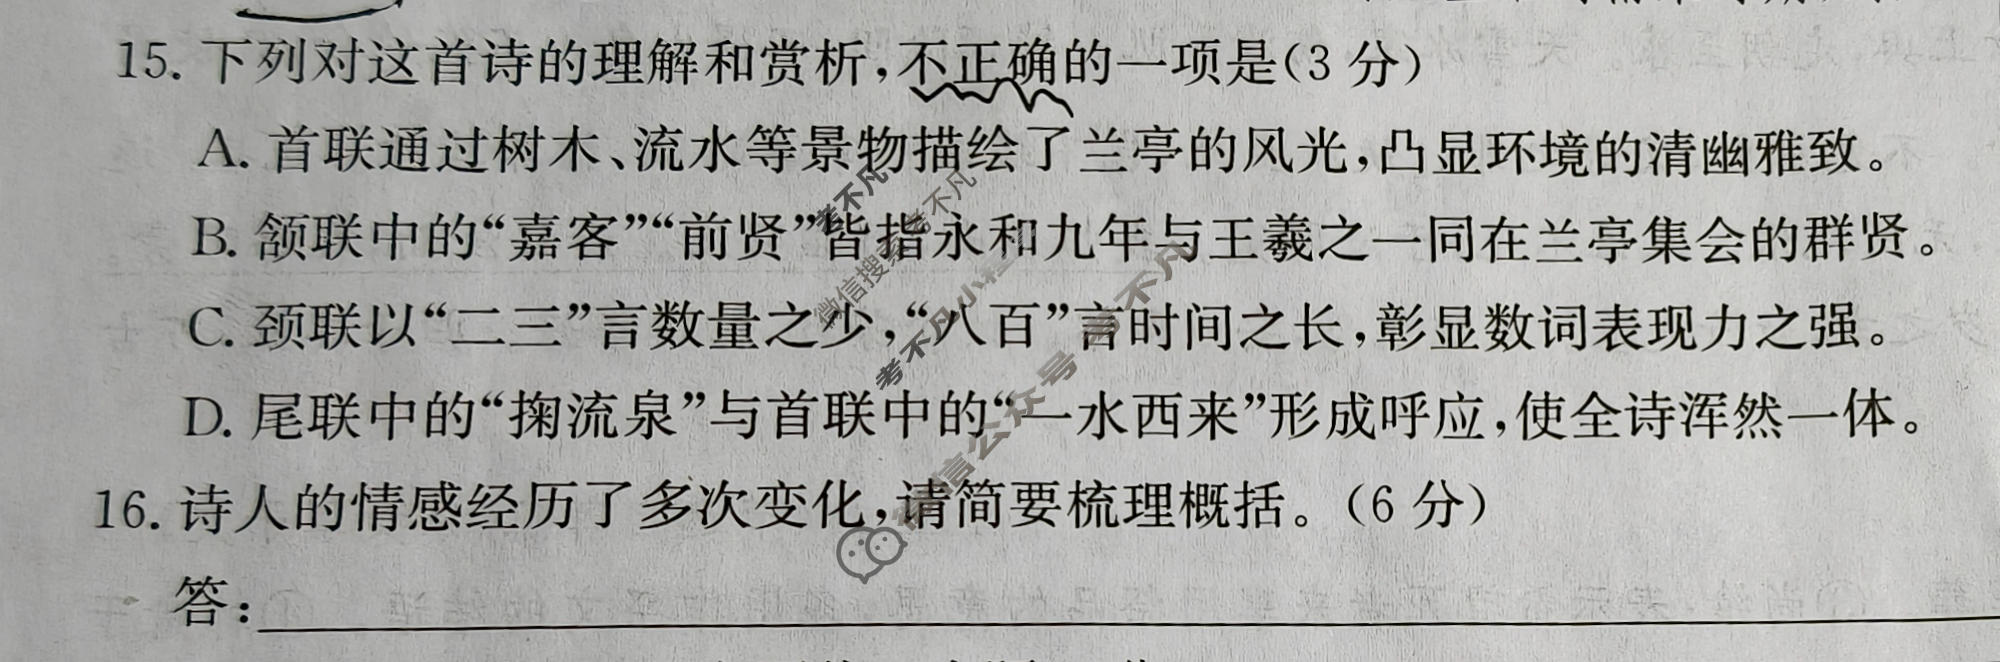 15. 下列对这首诗的理解和赏析,不正确的一项是(3 分)
A. 首联通过树木、流水等景物描绘了兰亭的风光,凸显环境的清幽雅致。
B. 颔联中的“嘉客”“前贤”皆指永和九年与王羲之一同在兰亭集会的群贤。
C. 颈联以“二三”言数量之少,“八百”言时间之长,彰显数词表现力之强。
D. 尾联中的“掬流泉”与首联中的“一水西来”形成呼应,使全诗浑然一体。
16. 诗人的情感经历了多次变化,请简要梳理概括。(6 分)
答: